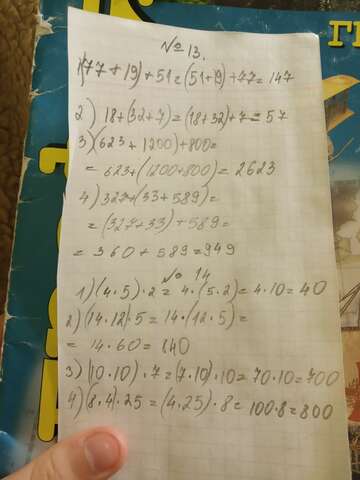 № 13.
1)(77+19)+51=(51+19)+77=147
2) 18+(32+7)=(18+32)+7=57
3)(623+1200)+800=
=623+(1200+800)=2623
4)327+(33+589)=
=(327+33)+589=
=360+589=949
№ 14
1)(4·5)·2=4·(5·2)=4·10=40
2)(14·12)·5=14·(12·5)=
=14·60=840
3)(10·10)·7=(7·10)·10=70·10=700
4)(8·4)·25=(4·25)·8=100·8=800